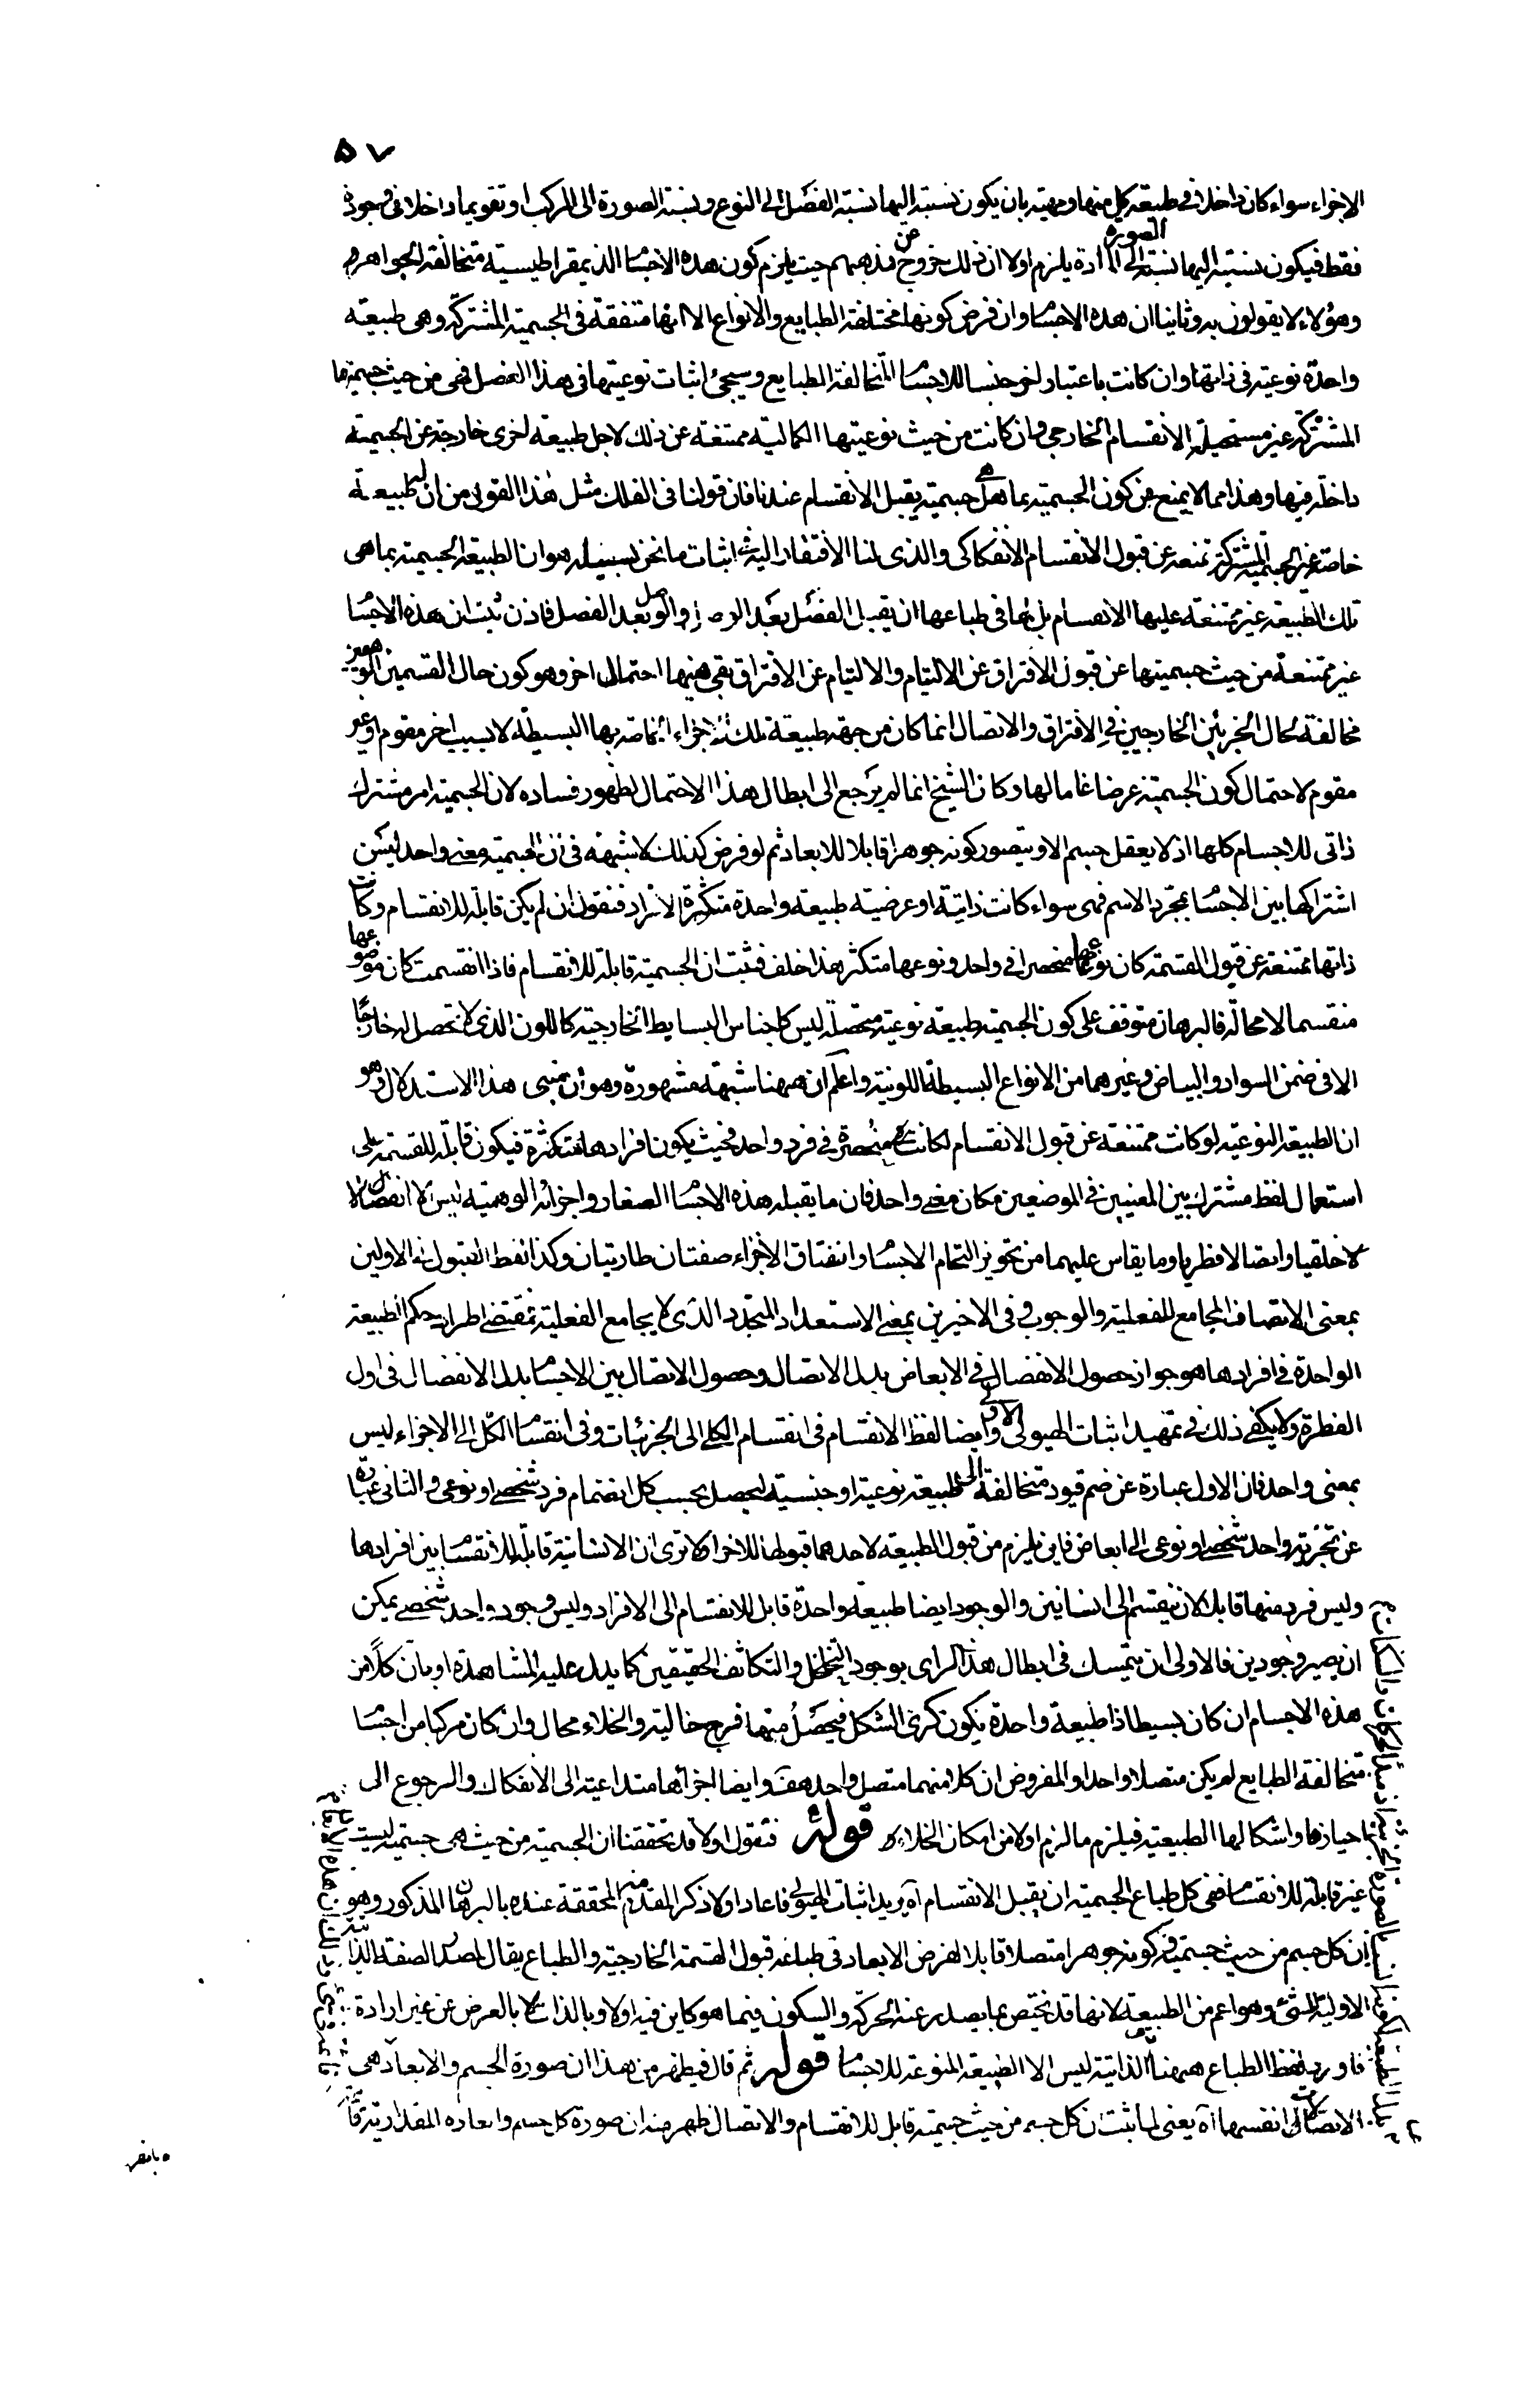 ٥٧
الاجزاء سواء كان داخلا فى طبيعة كل منها ومهيته بان يكون نسبته اليها نسبة الفصل الى النوع ونسبة الصورة الى المركب او تقويما داخلا فى وجوده
فقط فيكون نسبته اليها نسبة الصورة الى المادة يلزم اولا ان ذلك خروج عن مذهبهم حيث يلزم كون هذه الاجسام الذيمقراطيسية متخالفة الجواهر
وهؤلاء لا يقولون به وثانيا ان هذه الاجسام وان فرض كونها مختلفة الطبايع والانواع الا انها متفقة فى الجسمية المشتركة وهى طبيعة
واحدة نوعية فى ذاتها وان كانت باعتبار اخر جنسا للاجسام المتخالفة الطبايع وسيجئ اثبات نوعيتها فى هذا الفصل فهى من حيث جسميتها
المشتركة غير مستحيلة الانقسام الخارجى وان كانت من حيث نوعيتها الكمالية ممتنعة عن ذلك لاجل طبيعة اخرى خارجة عن الجسمية
داخلة فيها وهذا مما لا يمنع من كون الجسمية بما هى جسمية يقبل الانقسام عندنا فان قولنا فى الفلك مثل هذا القول من ان له طبيعة
خاصة غير الجسمية المشتركة تمنعه عن قبول الانقسام الانفكاكى والذى لنا الافتقار اليه فى اثبات ما نحن بسبيله هو ان الطبيعة الجسمية بما هى
تلك الطبيعة غير ممتنعة عليها الانقسام بل لها فى طباعها ان يقبل الفصل بعد الوصل والوصل بعد الفصل فاذن ثبت ان هذه الاجسام
غير ممتنعة من حيث جسميتها عن قبول الافتراق عن الالتيام والالتيام عن الافتراق بقى ههنا احتمال اخر وهو كون حال القسمين الوهميين
مخالفة لحال الجزئين الخارجين فى الافتراق والاتصال انما كان من جهة طبيعة تلك الاجزاء الخاصة بها البسيطة لا بسبب اخر مقوم او غير
مقوم لاحتمال كون الجسمية عرضا عاما لها وكان الشيخ انما لم يرجع الى ابطال هذا الاحتمال لظهور فساده لان الجسمية امر مشترك
ذاتى للاجسام كلها اذ لا يعقل جسم الا ويتصور كونه جوهرا قابلا للابعاد ثم لو فرض كذلك لا شبهة فى ان الجسمية معنى واحد ليس
اشتراكها بين الاجسام بمجرد الاسم فهى سواء كانت ذاتية او عرضية طبيعة واحدة متكثرة الافراد فنقول ان لم يكن قابلة للانقسام وكانت
ذاتها ممتنعة عن قبول القسمة كان نوعها منحصرا فى واحد ونوعها متكثر هذا خلف فثبت ان الجسمية قابلة للانقسام فاذا انقسمت كان موضوعها
منقسما لا محالة فالبرهان متوقف على كون الجسمية طبيعة نوعية متحصلة ليس كاجناس البسايط الخارجية كاللون الذى لا تحصل له خارجا
الا فى ضمن السواد والبياض وغيرهما من الانواع البسيطة اللونية واعلم ان ههنا شبهة مشهورة وهو ان مبنى هذا الاستدلال وهو
ان الطبيعة النوعية لو كانت ممتنعة عن قبول الانقسام لكانت منحصرة فى فرد واحد فحيث يكون افرادها متكثرة فيكون قابلة للقسمة على
استعمال لفظ مشترك بين المعنيين فى الموضعين مكان معنى واحد فان ما يقبله هذه الاجسام الصغار واجزائه الوهمية ليس الا انفصالا
خلقيا واتصالا فطريا وما يقاس عليهما من تجويز التحام الاجسام وانفتاق الاجزاء صفتان طاريتان وكذا لفظ القبول فى الاولين
بمعنى الاتصاف المجامع للفعلية والوجوب وفى الاخيرين بمعنى الاستعداد المتجدد الذى لا يجامع الفعلية فمقتضى اطراد حكم الطبيعة
الواحدة فى افرادها هو جواز حصول الانفصال فى الابعاض بدل الاتصال وحصول الاتصال بين الاجسام بدل الانفصال فى اول
الفطرة ولا يكفى ذلك فى تمهيد اثبات الهيولى الاولى وايضا لفظ الانقسام فى انقسام الكلى الى الجزئيات وفى انقسام الكل الى الاجزاء ليس
بمعنى واحد فان الاول عبارة عن ضم قيود متخالفة الى طبيعة نوعية او جنسية ليحصل بحسب كل انضمام فرد شخصى او نوعى والثانى عبارة
عن تجزية واحد شخصى او نوعى الى ابعاض فاين يلزم من قبول الطبيعة لاحدهما قبولها للاخر الا ترى ان الانسانية قابلة للانقسام بين افرادها
وليس فرد منها قابلا لان ينقسم الى انسانين والوجود ايضا طبيعة واحدة قابل للانقسام الى الافراد وليس وجود واحد شخصى يمكن
ان يصير وجودين فالاولى ان يتمسك فى ابطال هذا الراى بوجود التخلخل والتكاثف الحقيقين كما يدل عليه المشاهدة او بان كلا من
هذه الاجسام ان كان بسيطا ذا طبيعة واحدة يكون كرى الشكل فيحصل منها فرج خالية والخلاء محال وان كان مركبا من اجسام
متخالفة الطبايع لم يكن متصلا واحدا والمفروض ان كلا منهما متصل واحد هف وايضا اجزائها متداعية الى الانفكاك والرجوع الى
احيازها واشكالها الطبيعية فيلزم ما لزم اولا من امكان الخلاء قوله فنقول اولا قد تحققنا ان الجسمية من حيث هى جسمية ليست
غير قابلة للانقسام ففى كل طباع الجسمية ان يقبل الانقسام آه يريد اثبات الهيولى فاعاد اولا ذكر المقدمة المحققة عنده بالبرهان المذكور وهو
ان كل جسم من حيث جسميته وكونه جوهرا متصلا قابلا لفرض الابعاد فى طباعه قبول القسمة الخارجية والطباع يقال لمصدر الصفة الذاتية
الاولية للشئ وهو اعم من الطبيعة لانها قد تختص بما يصدر عنه الحركة والسكون فيما هو كاين فيه اولا وبالذات لا بالعرض عن غير ارادة
فاورد لفظ الطباع ههنا الذاتية ليس الا الطبيعة المنوعة للاجسام قوله ثم قال فيظهر من هذا ان صورة الجسم والابعاد هى
الاتصالات انفسها آه يعنى لما ثبت ان كل جسم من حيث جسميته قابل للانقسام والاتصال ظهر منه ان صورة كل جسم وابعاده المقدارية